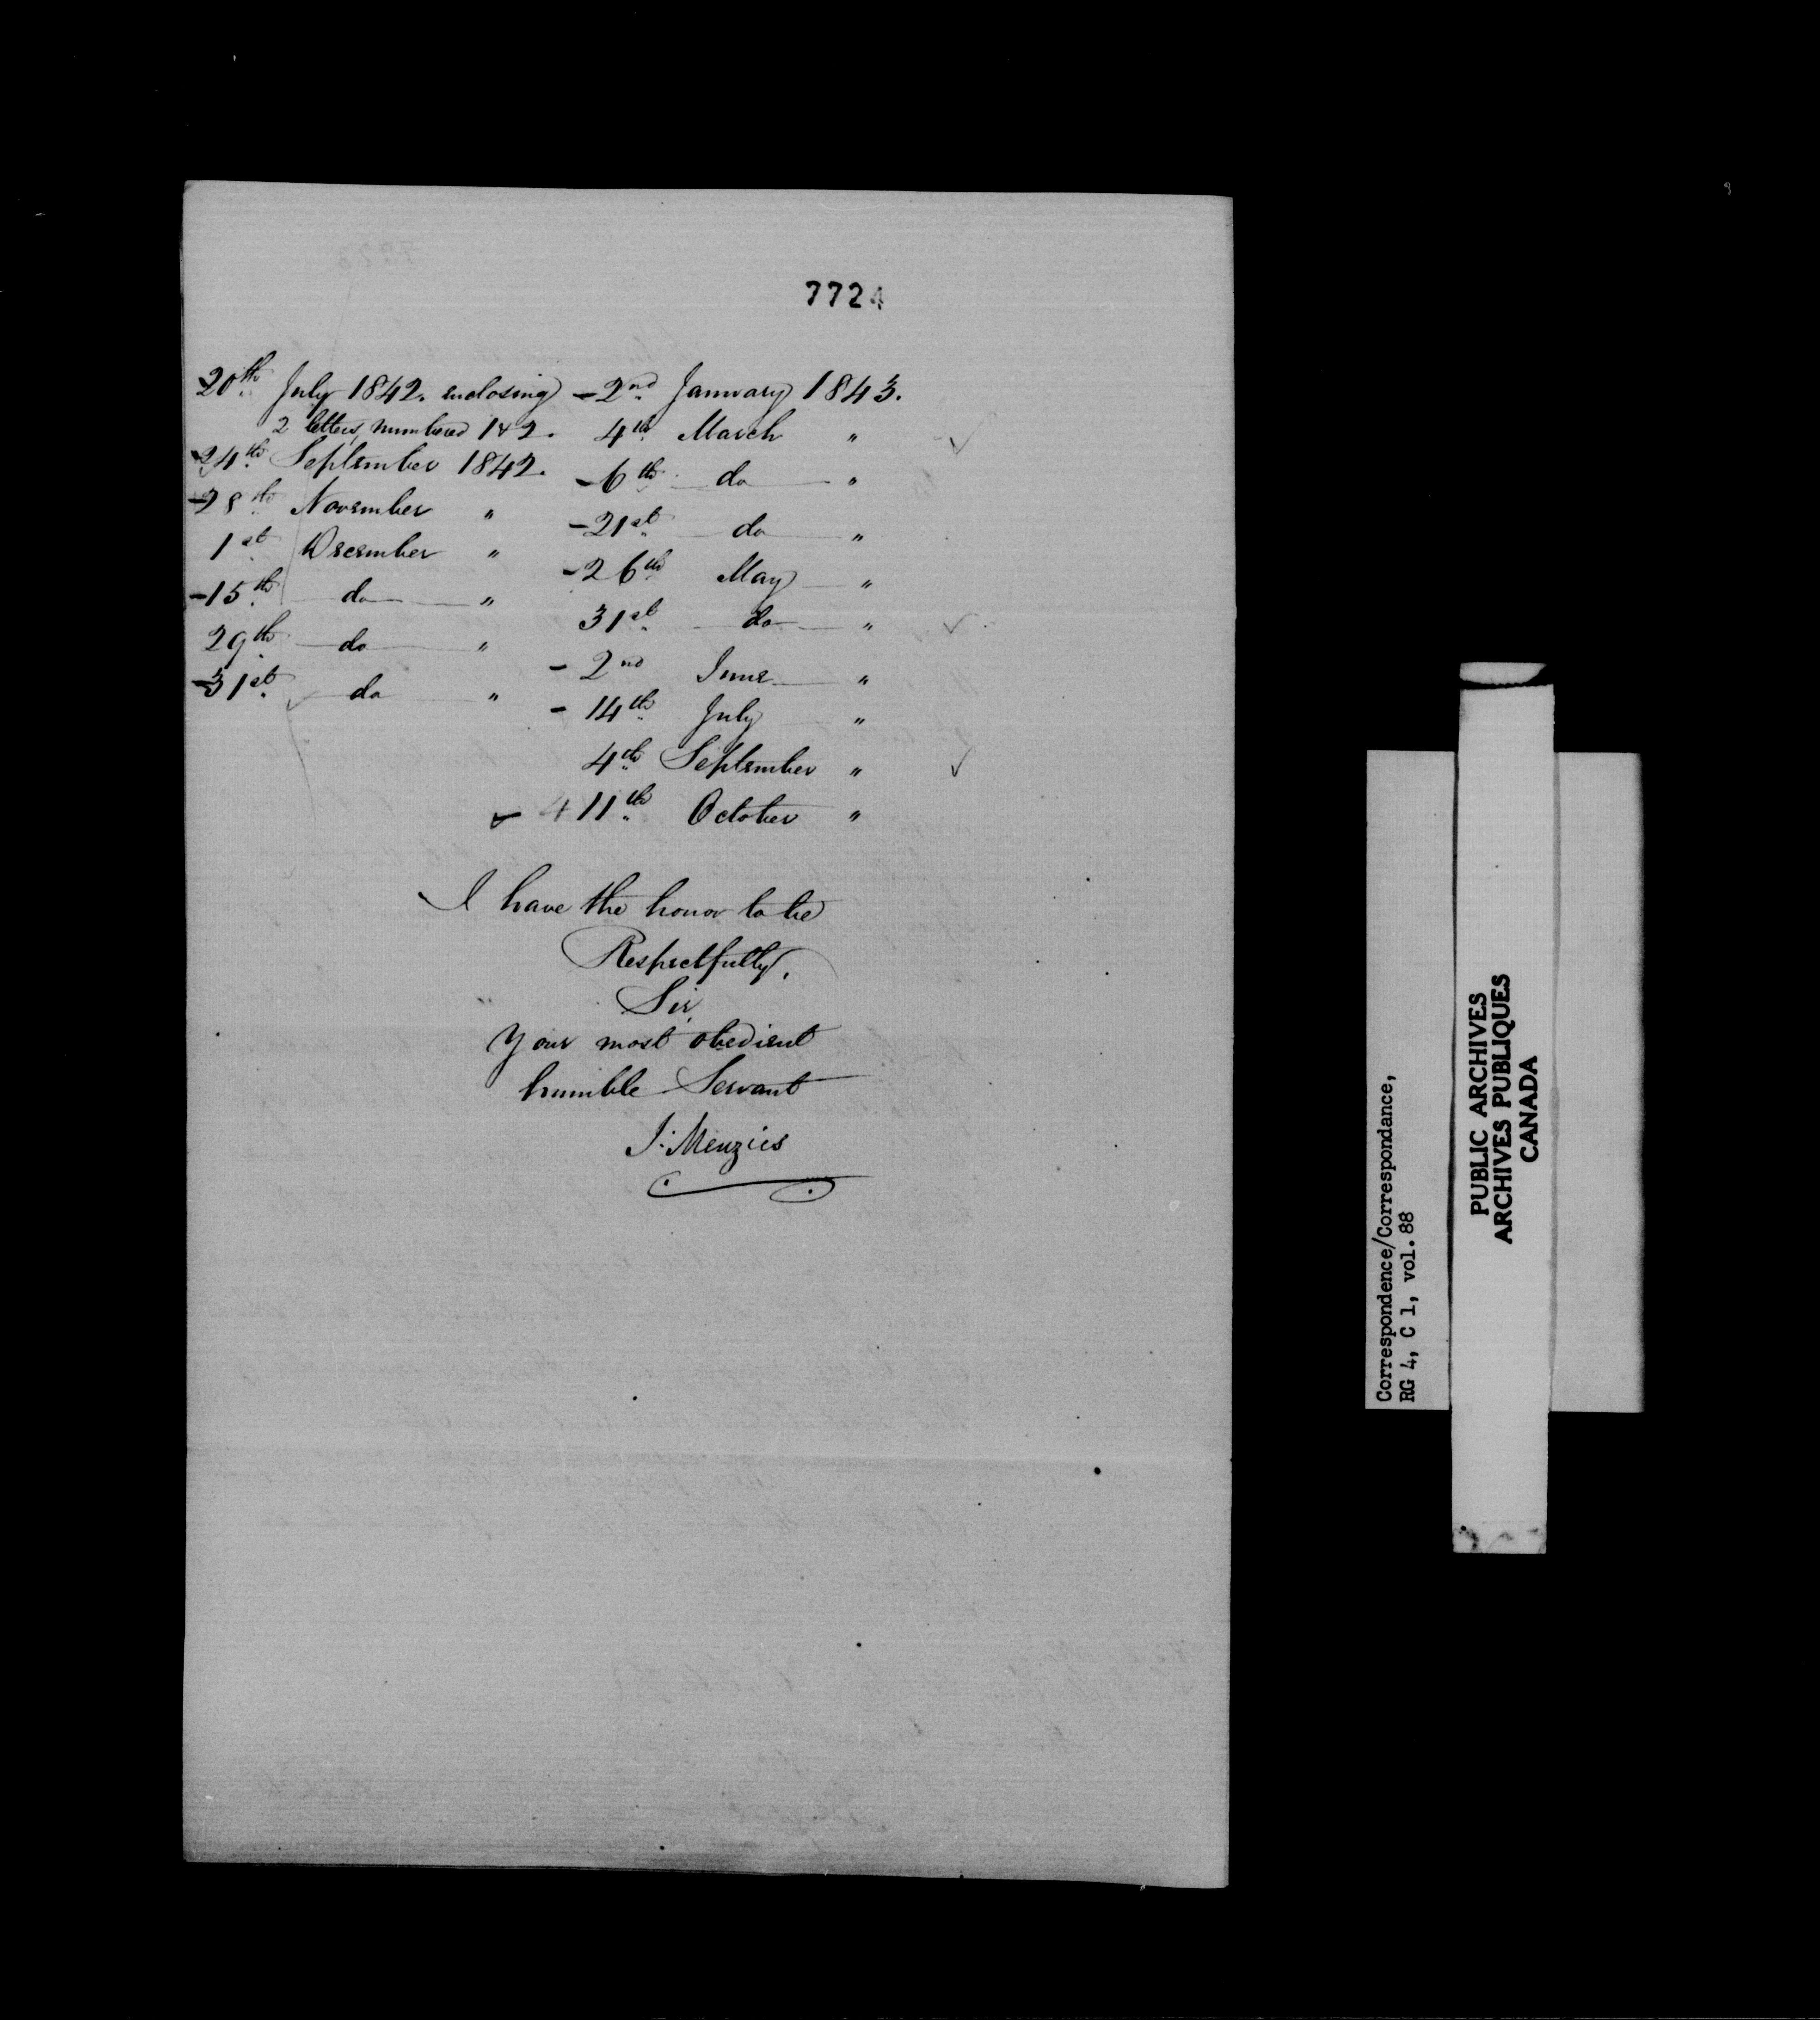 7724
20th July 1842. enclosing
2 letters, numbered 1 & 2.
24th September 1842.
-28th November "
1st December "
-15th do "
29th do "
-31st do "
-2nd January 1843.
4th March "
-6th do "
-21st do "
-26th May "
31st do "
-2nd June "
-14th July "
4th September "
& 11th October "
I have the honor to be
Respectfully,
Sir,
Your most obedient
humble Servant
J. Menzies
Correspondence/Correspondance,
RG 4, C 1, vol. 88
PUBLIC ARCHIVES
ARCHIVES PUBLIQUES
CANADA